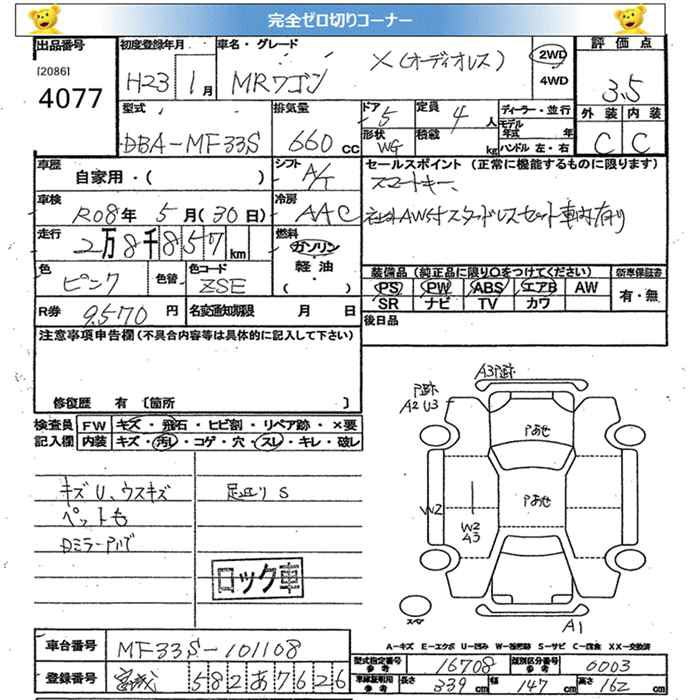 完全ゼロ切りコーナー
出品番号 初度登録年月 車名・グレード 評価点
[2086]
4077
H23 1月 MRワゴン X(オーディオレス) 2WD 4WD 3.5
型式 排気量 ドア 定員 ディーラー・並行 外装 内装
DBA-MF33S 660cc 5 4人 モデル年式 年 C C
形状 WG 積載 kg ハンドル 左・右
車歴 シフト セールスポイント(正常に機能するものに限ります)
自家用・( ) A/T スマートキー、
車検 冷房
R08年 5月(30日) AAC 社外AW付スタッドレスセット車内有り
走行 燃料
2万8千857km ガソリン
軽油
・( )
色 色替 色コード 装備品(純正品に限り○をつけてください) 新車保証書
ピンク ZSE PS PW ABS エアB AW 有・無
SR ナビ TV カワ
R券 9,570円 名変通知期限 月 日 後日品
注意事項申告欄(不具合内容等は具体的に記入して下さい)
修復歴 有 〔箇所 〕
検査員 FW キズ・飛石・ヒビ割・リペア跡・×要
記入欄 内装 キズ・汚レ・コゲ・穴・スレ・キレ・破レ
キズU、ウスキズ 足廻リS
ペット毛
Dミラーアルブ
ロック車
A3P跡
P跡
A2 U3
Pあせ
Pあせ
W2
W2
A3
スペア
A1
A-キズ E-エクボ U-凹み W-板金跡 S-サビ C-腐食 XX-交換済
車台番号 MF33S-101108
型式指定番号 参考 16708 類別区分番号 参考 0003
登録番号 宮城 582あ7626
車庫証明用 参考 長さ 339cm 幅 147cm 高さ 162cm